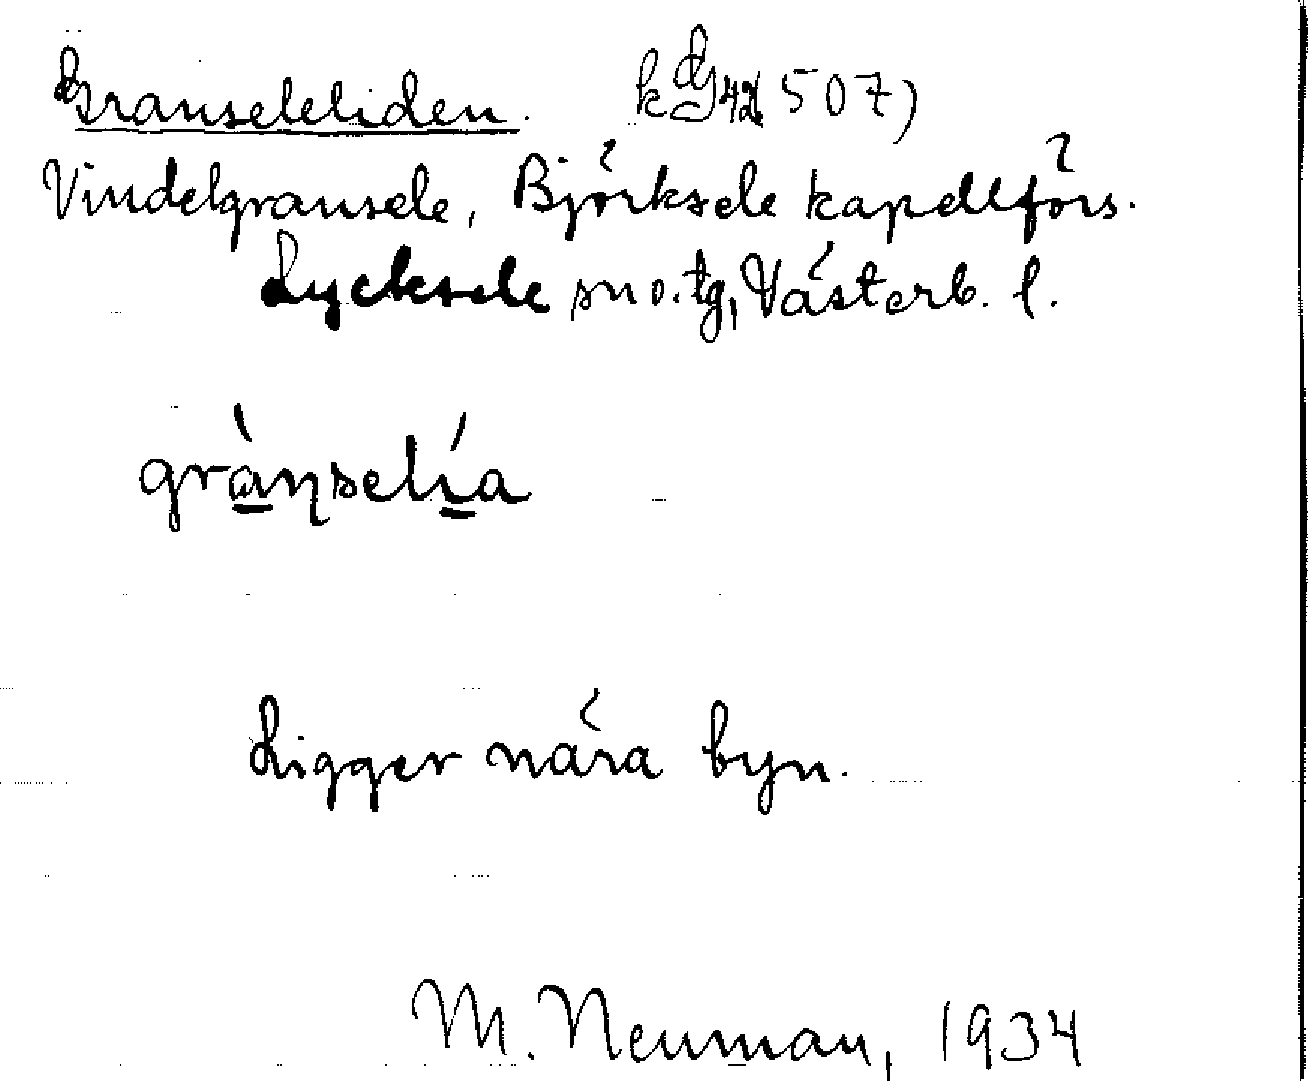 Granseleliden. 507)
Vindelgransele, Björksele kapellförs.
Lycksele sn o. tg, Västerb. l.
grànselía
Ligger nära byn.
M. Neuman, 1934